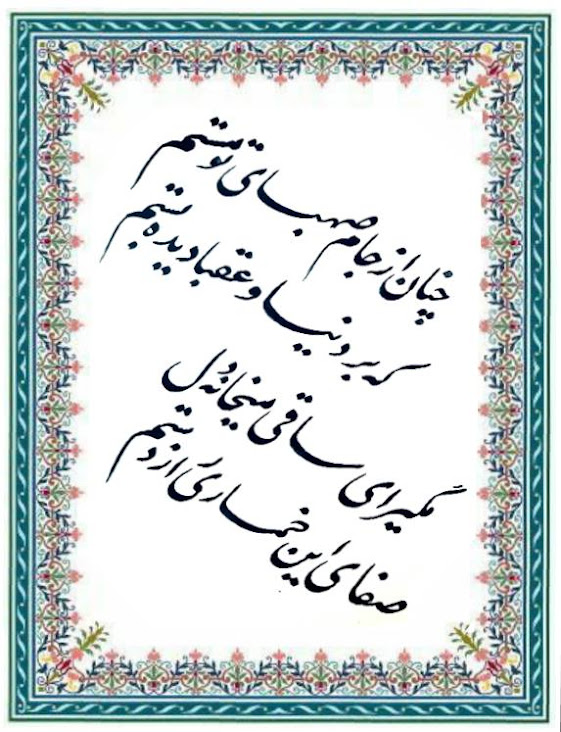 چنان از جام صهبای تو مستم
که بر دنیا و عقبا دیده بستم
مگیر ای ساقی میخانهٔ دل
صفای این خماری را ز دستم